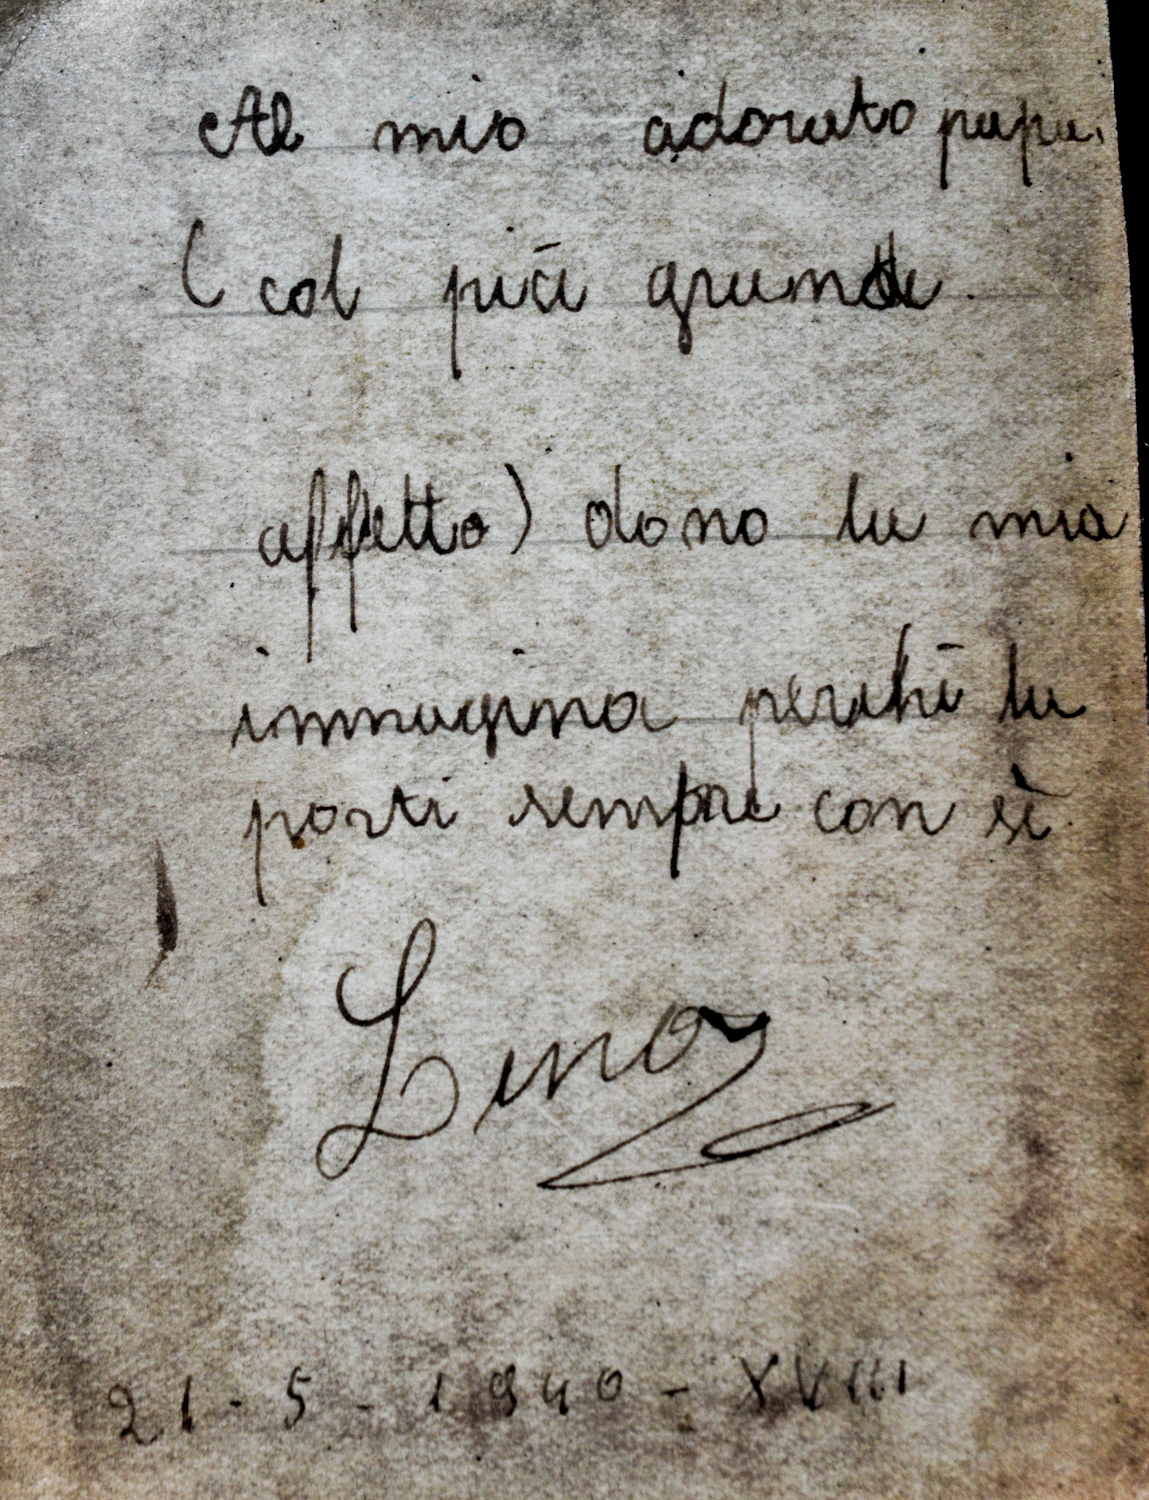 Al mio adorato papà
(col più grande
affetto) dono la mia
immagina perchè la
porti sempre con sè
Lino
21-5-1940-XVIII